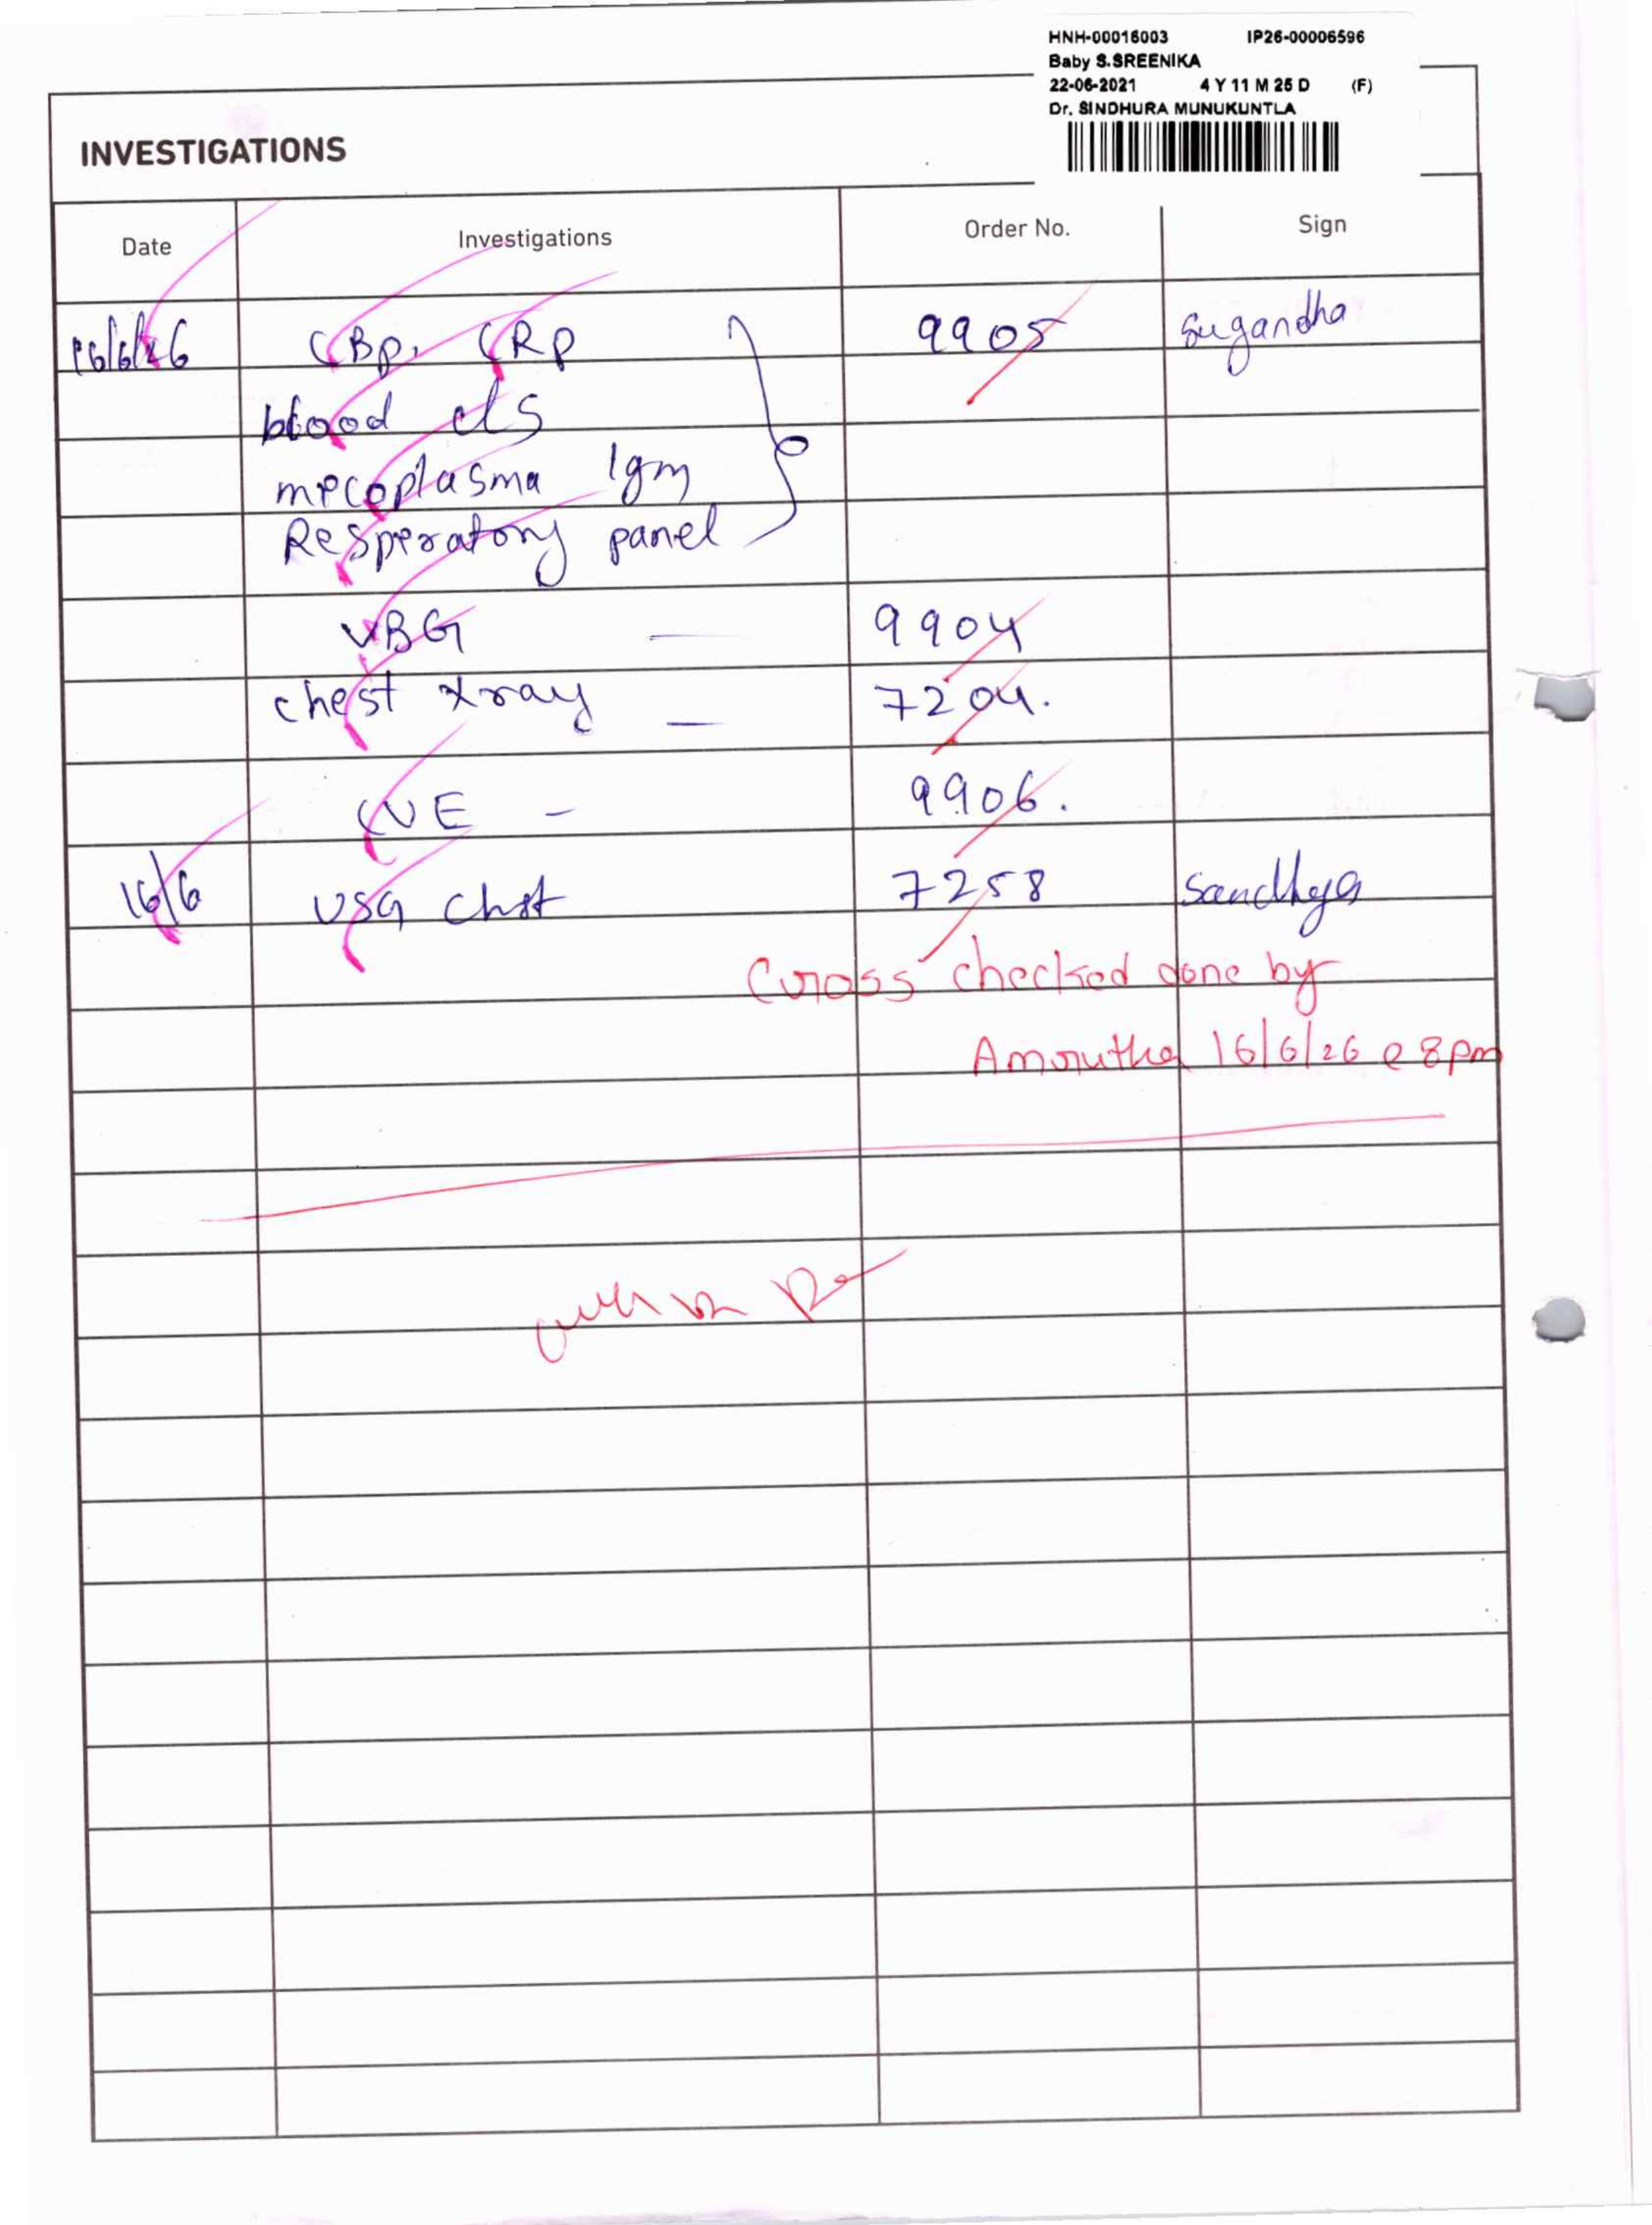 HNH-00016003 IP26-00006596
Baby S.SREENIKA
22-06-2021 4 Y 11 M 25 D (F)
Dr. SINDHURA MUNUKUNTLA
INVESTIGATIONS
Date Investigations Order No. Sign
16/6/26 CBP, CRP 9905 Sugandha
blood cls
mycoplasma Igm
Resperatory panel
VBG — 9904
chest xray — 7204.
CUE - 9906.
16/6 USG Chst 7258 Sandhya
Cross checked done by
Amrutha 16/6/26 @ 8pm